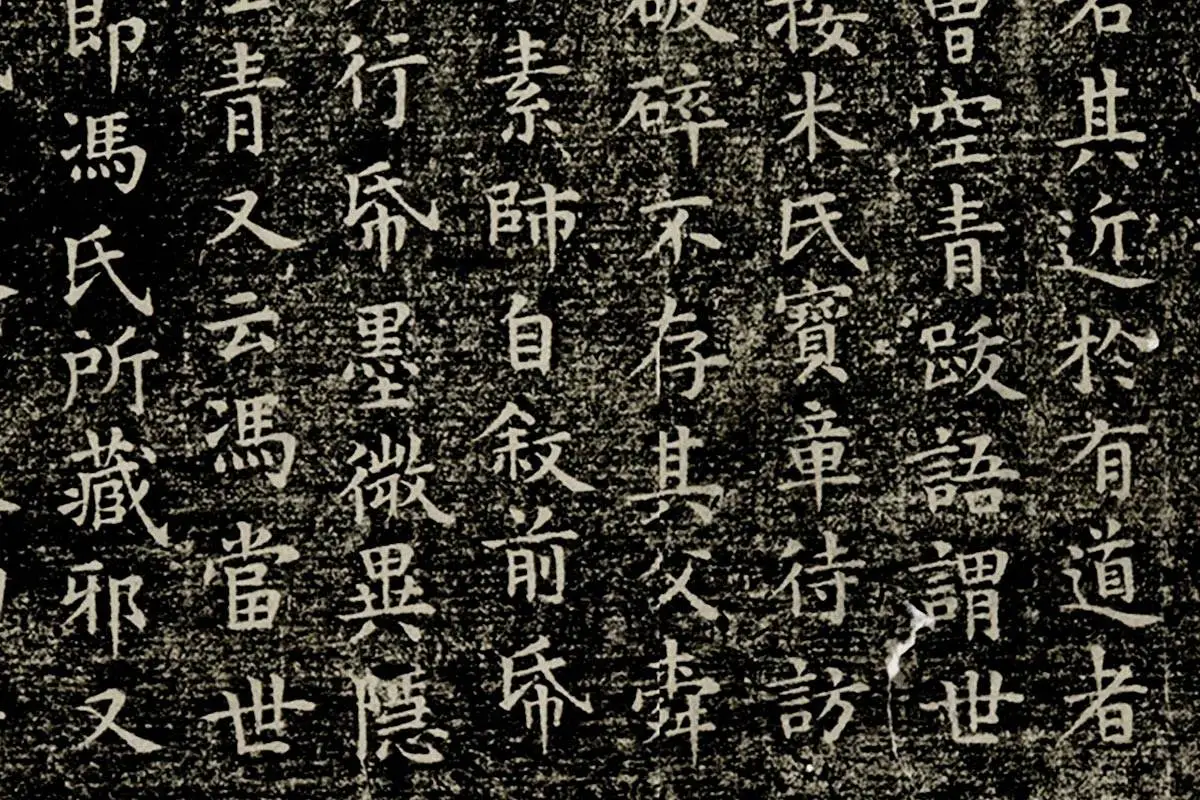 其近於有道者
曾空青跋語謂世
按米氏寶章待訪
破碎不存其父舜
素師自敘前帋
行帋墨微異隱
青又云馮當世
即馮氏所藏邪又